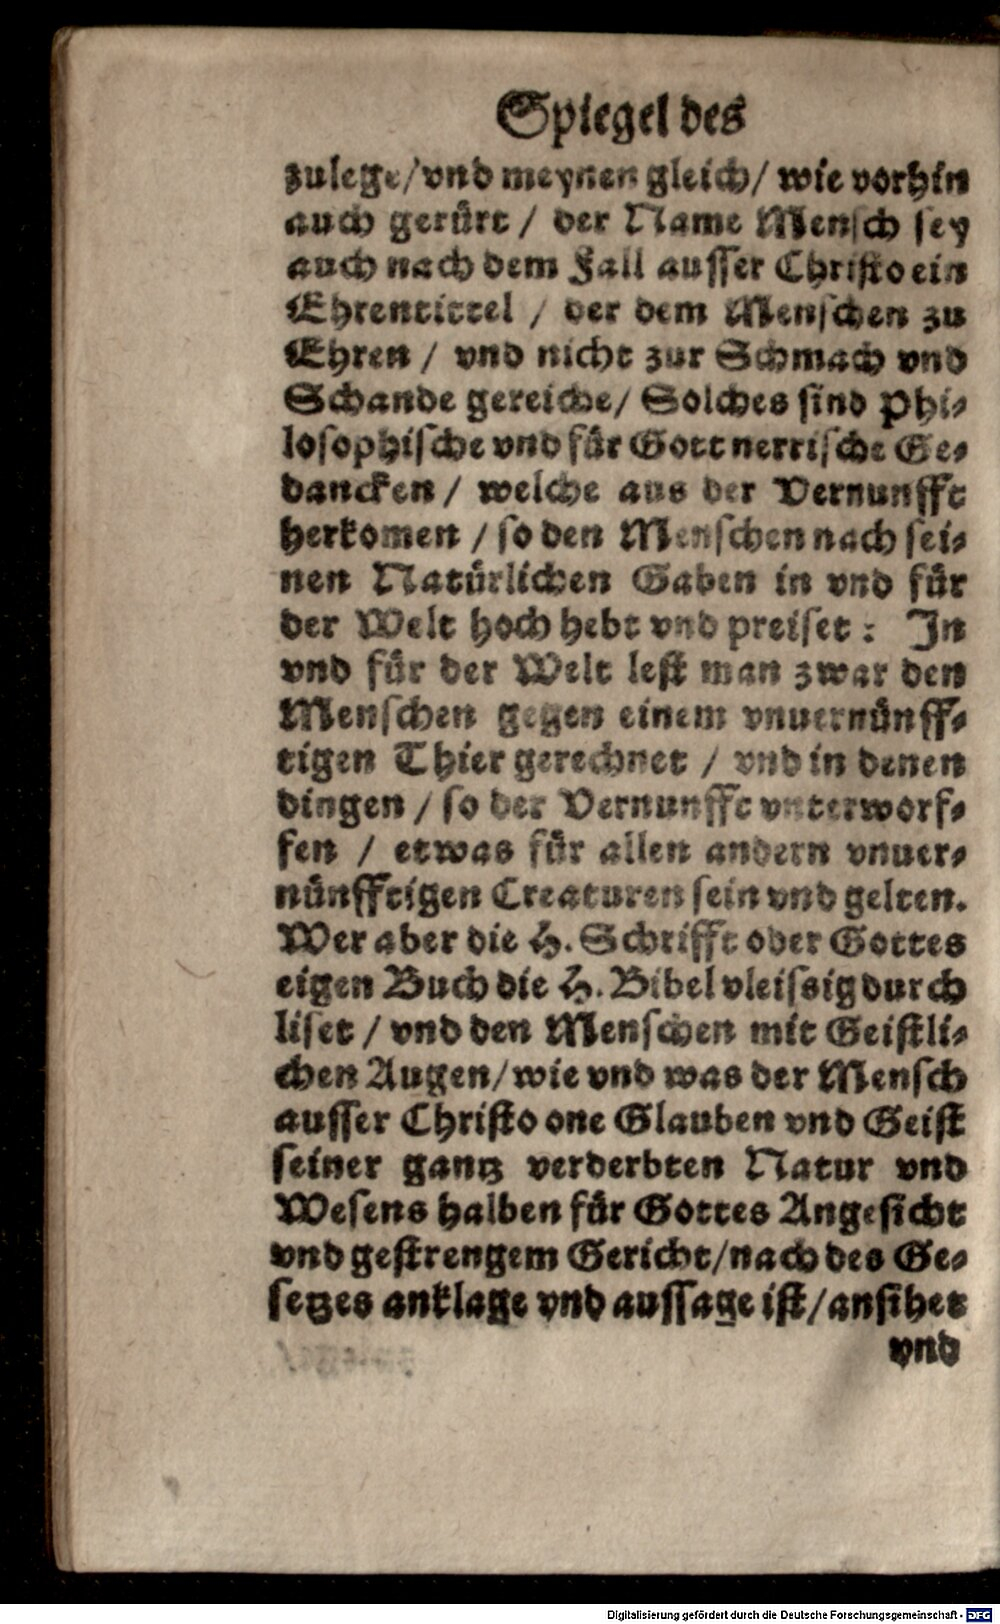 Spiegel des
zulege/ vnd meynen gleich/ wie vorhin
auch gerürt / der Name Mensch sey
auch nach dem Fall ausser Christo ein
Ehrentittel / der dem Menschen zu
Ehren / vnd nicht zur Schmach vnd
Schande gereiche/ Solches sind Phi-
losophische vnd für Gott nerrische Ge-
dancken / welche aus der Vernunfft
herkomen / so den Menschen nach sei-
nen Natürlichen Gaben in vnd für
der Welt hoch hebt vnd preiset: In
vnd für der Welt lest man zwar den
Menschen gegen einem vnuernünff-
tigen Thier gerechnet / vnd in denen
dingen / so der Vernunfft vnterworf-
fen / etwas für allen andern vnuer-
nünfftigen Creaturen sein vnd gelten.
Wer aber die H. Schrifft oder Gottes
eigen Buch die H. Bibel vleissig durch
liset / vnd den Menschen mit Geistli-
chen Augen/ wie vnd was der Mensch
ausser Christo one Glauben vnd Geist
seiner gantz verderbten Natur vnd
Wesens halben für Gottes Angesicht
vnd gestrengem Gericht/ nach des Ge-
setzes anklage vnd aussage ist/ ansihet
vnd
Digitalisierung gefördert durch die Deutsche Forschungsgemeinschaft - DFG